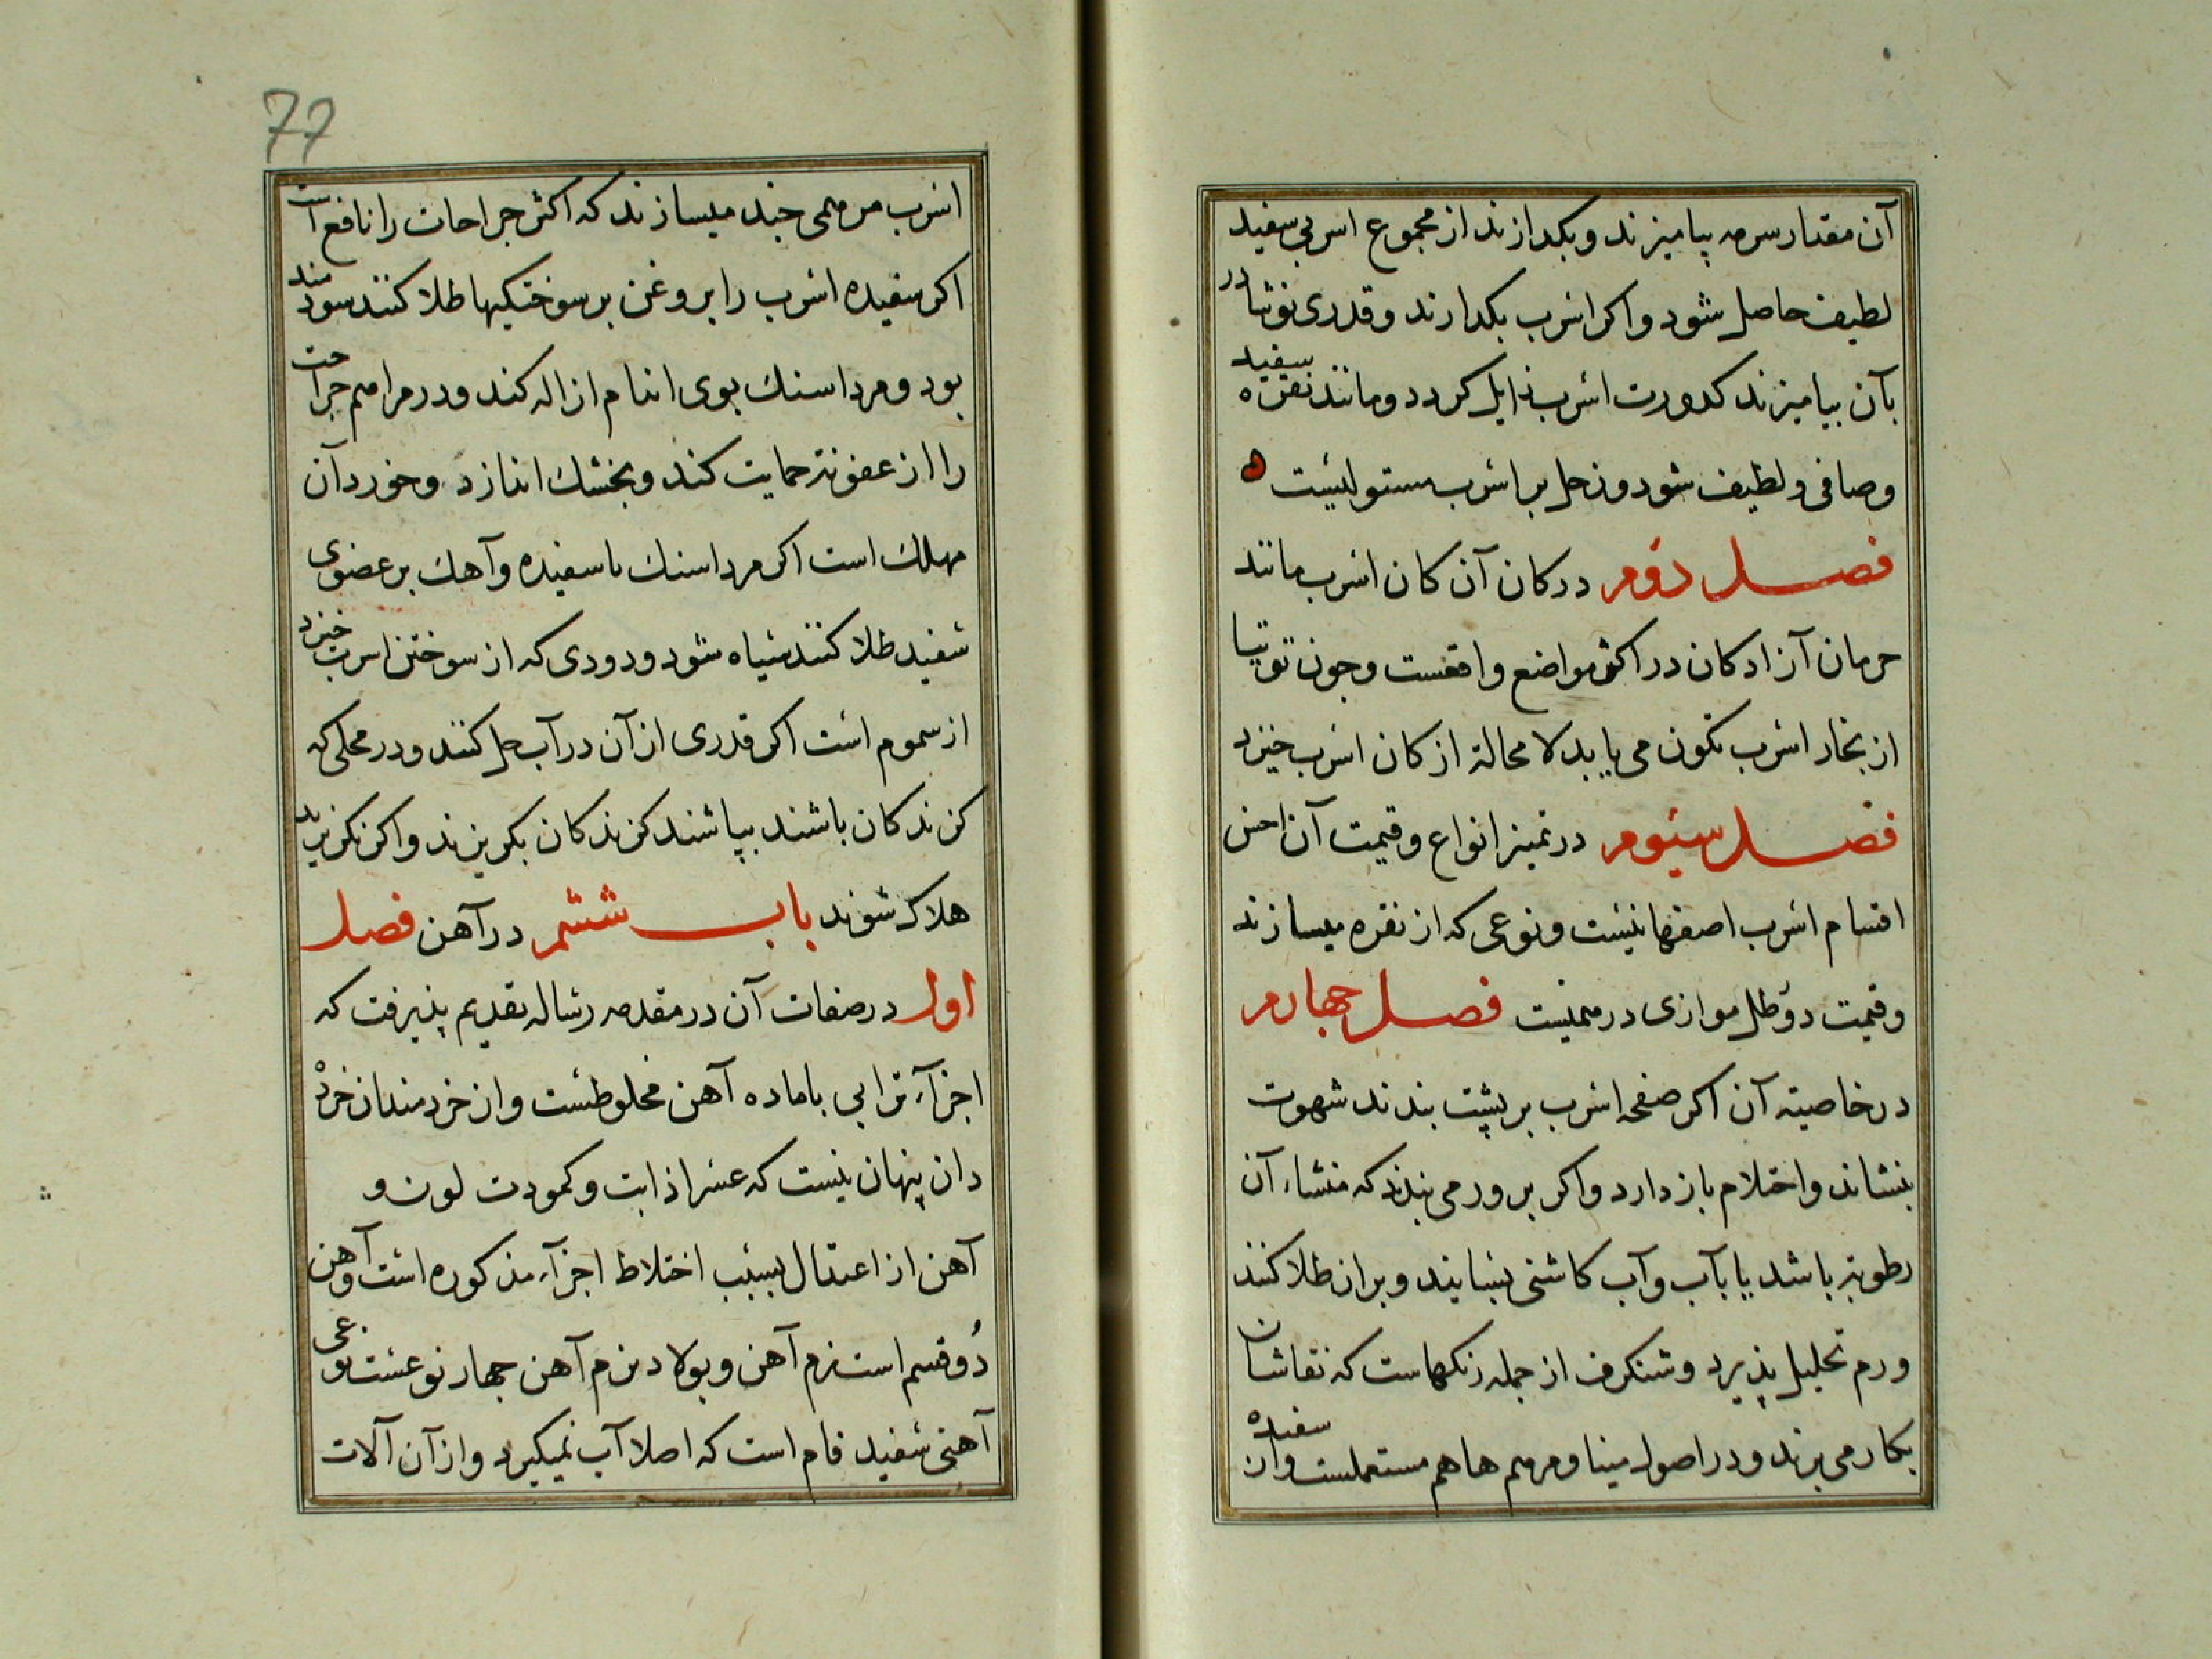 آن مقدار سرمه بیامیزند و بکدازند از مجموع اسربی سفید
لطیف حاصل شود و اکر اسرب بکدازند و قدری نوشادر
بآن بیامیزند کدورت اسرب زایل کردد و مانند نقره سفید
و صافی و لطیف شود و زحل بر اسرب مستولیست
فصل دوم در کان آن کان اسرب مانند
حرمان آزادکان در اکثر مواضع واقعست و جون توتیا
از بخار اسرب تکون می یابد لا محالة از کان اسرب خیزد
فصل سیوم در تمیز انواع و قیمت آن احسن
اقسام اسرب اصفهانیست و نوعی که از نقره میسازند
و قیمت دو رطل موازی درمیست فصل جهارم
در خاصیته آن اکر صفحه اسرب بر پشت بندند شهوت
بنشاند و احتلام باز دارد و اکر بر ورمی بندند که منشاء آن
رطوبته باشد یا بآب و آب کاشنی بسایند و بران طلا کنند
ورم تحلیل پذیرد و شنکرف از جمله رنکهاست که نقاشان
بکار می برند و در اصول مینا و مرهم ها هم مستعملست و از سفیده
77
اسرب مرهمی جند میسازند که اکثر جراحات را نافع است
اکر سفیده اسرب را بروغن بر سوختکیها طلا کنند سودمند
بود و مرداسنك بوی اندام ازاله کند و در مراهم جراحت
را از عفونته حمایت کند و بخشك اندازد و خوردن آن
مهلك است اکر مرداسنك با سفیده و آهك بر عضوی
سفید طلا کنند سیاه شود و دودی که از سوختن اسرب خیزد
از سموم است اکر قدری از آن در آب حل کنند و در محلی که
کزندکان باشند بپاشند کزندکان بکریزند و اکر نکریزند
هلاک شوند باب ششم در آهن فصل
اول در صفات آن در مقدمه رساله تقدیم پذیرفت که
اجزآء ترابی با ماده آهن مخلوطست و از خردمندان خرده
دان پنهان نیست که عسر اذابت و کمودت لون و
آهن از اعتدال بسبب اختلاط اجزآء مذکوره است و آهن
دو قسم است نرم آهن و بولاد نرم آهن جهار نوعست نوعی
آهنی سفید فام است که اصلا آب نمیکیرد و از آن آلات